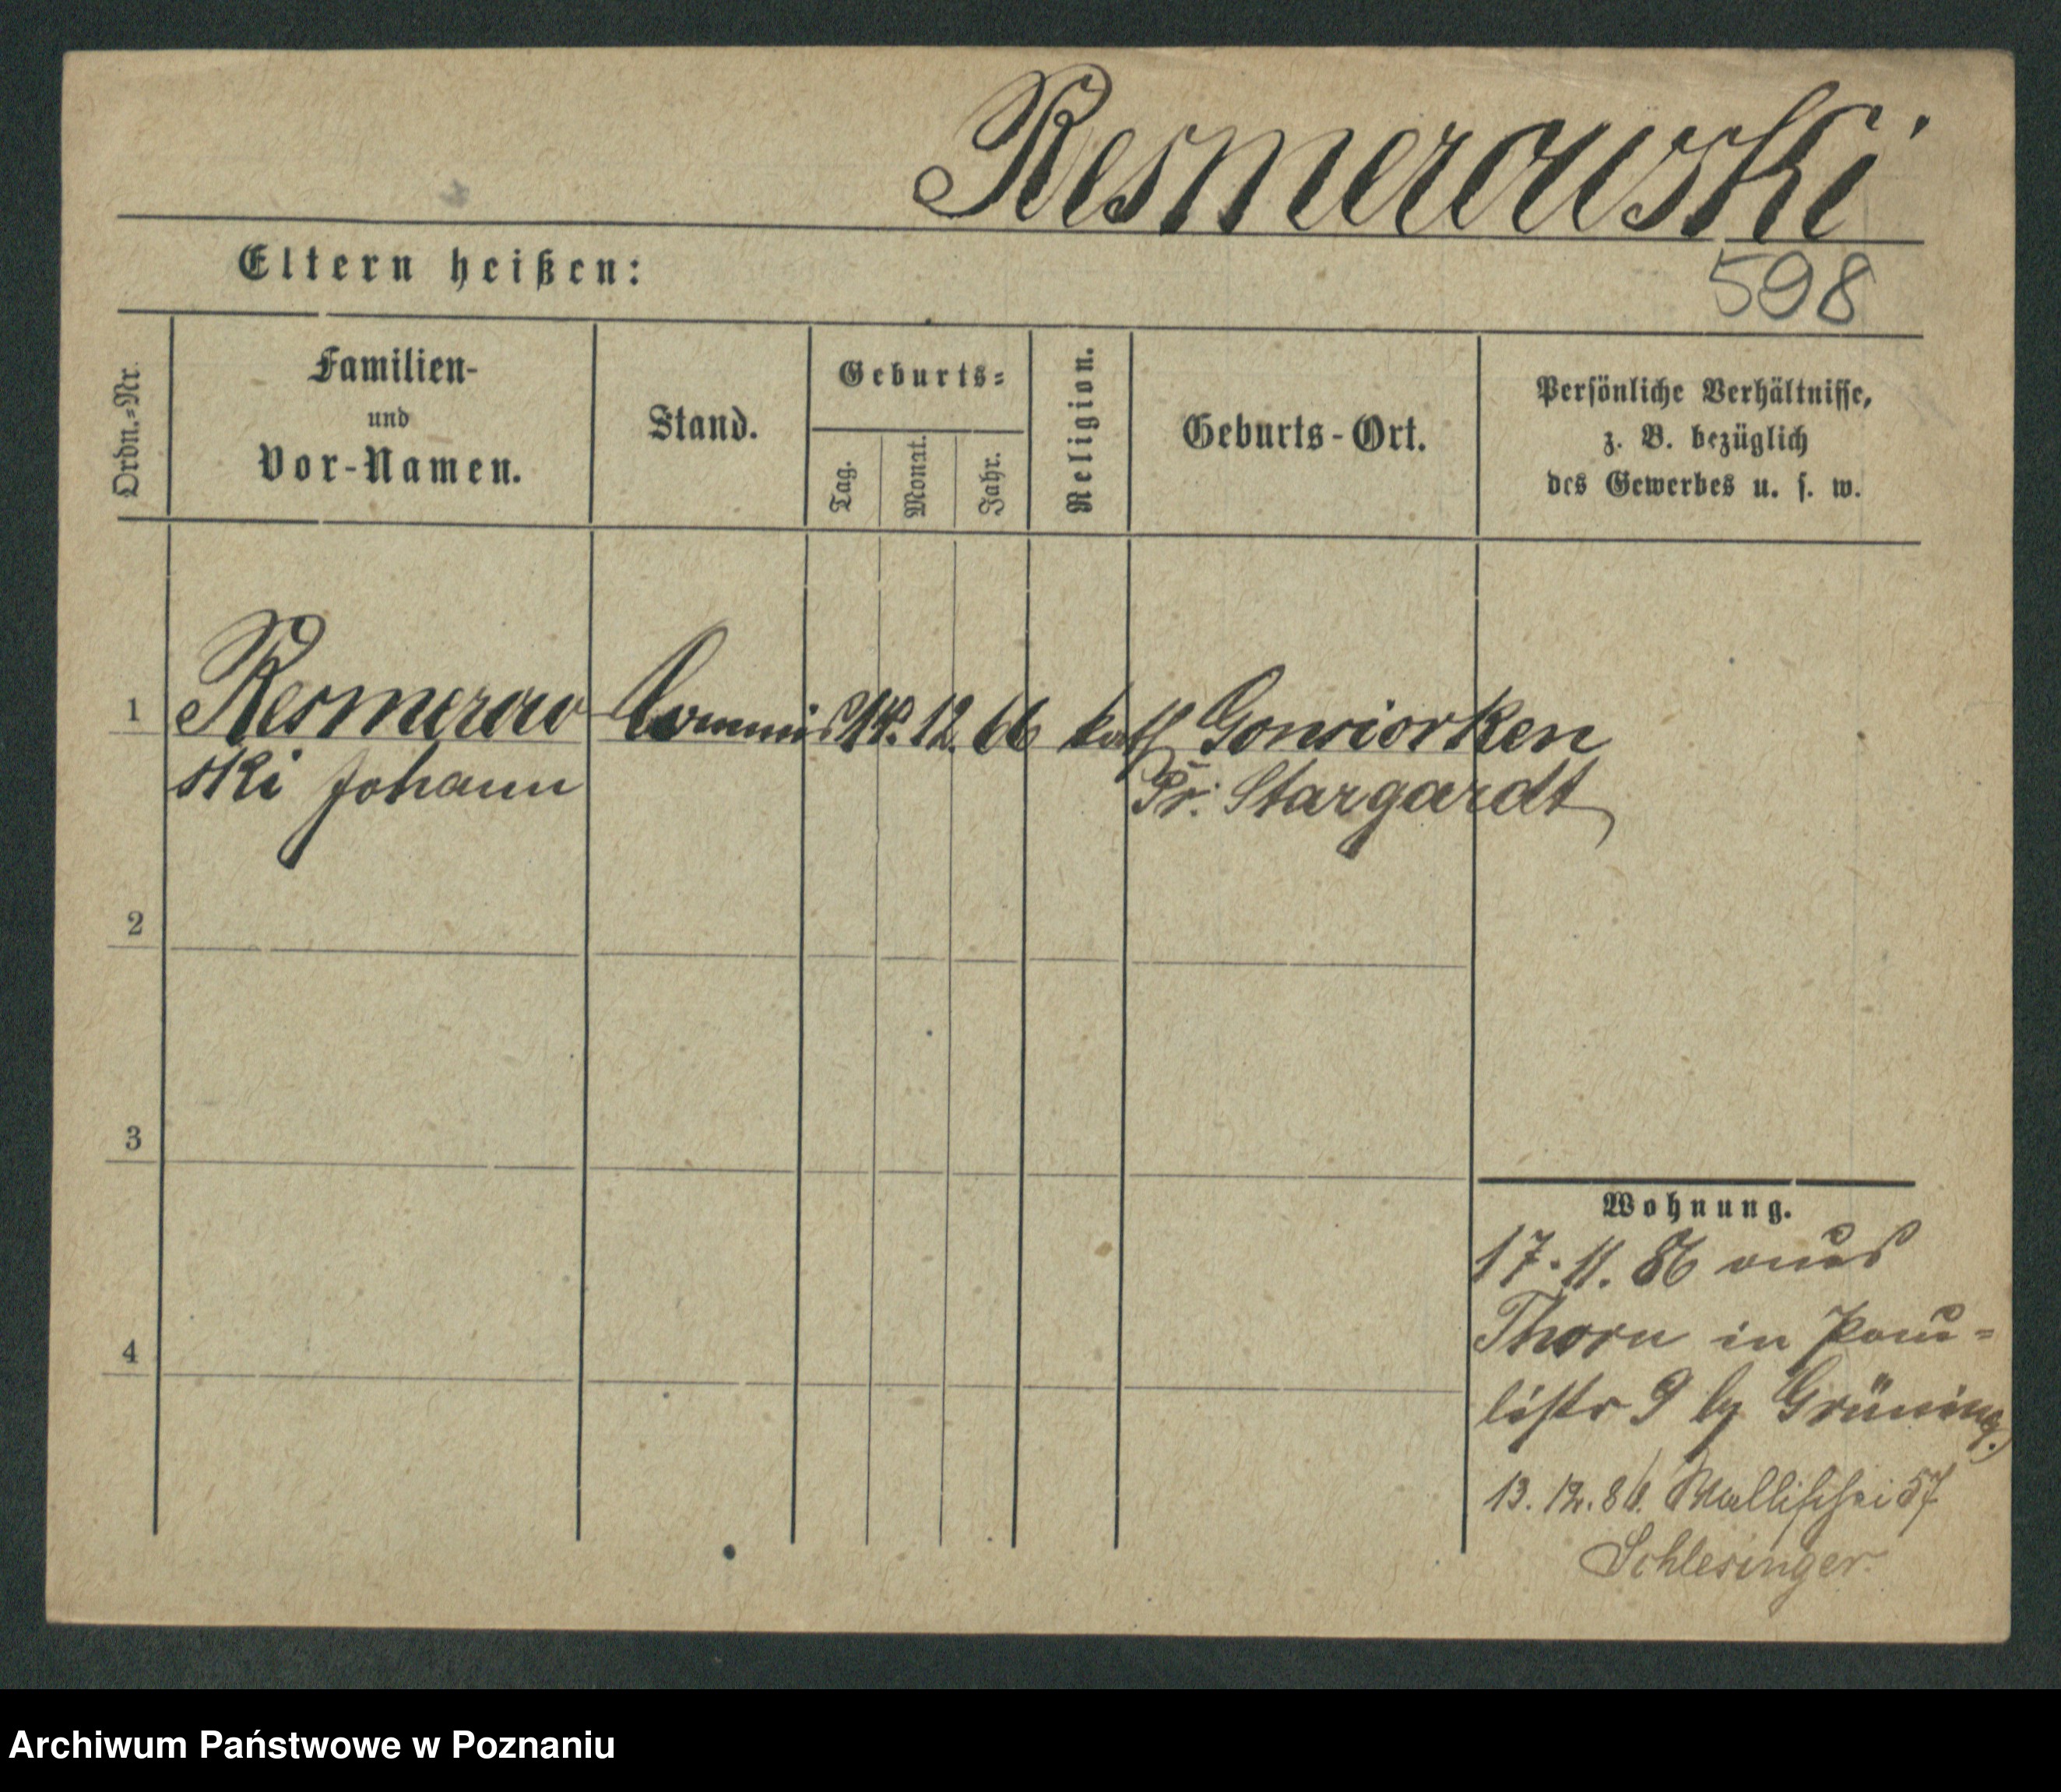 Resmerowski
598
Eltern heißen:
Ordn.=Nr.
Familien-
und
Vor-Namen.
Stand.
Geburts=
Tag.
Monat.
Jahr.
Religion.
Geburts-Ort.
Persönliche Verhältnisse,
z. B. bezüglich
des Gewerbes u. s. w.
1 Resmerow Commis 14. 12. 66 kath Gowiorken
ski Johann Pr. Stargardt
2
3
4
Wohnung.
17. 11. 86 aus
Thorn in Pau-
listr 9 by Grüning.
13. 12. 86. Wallischei 57
Schlesinger
Archiwum Państwowe w Poznaniu